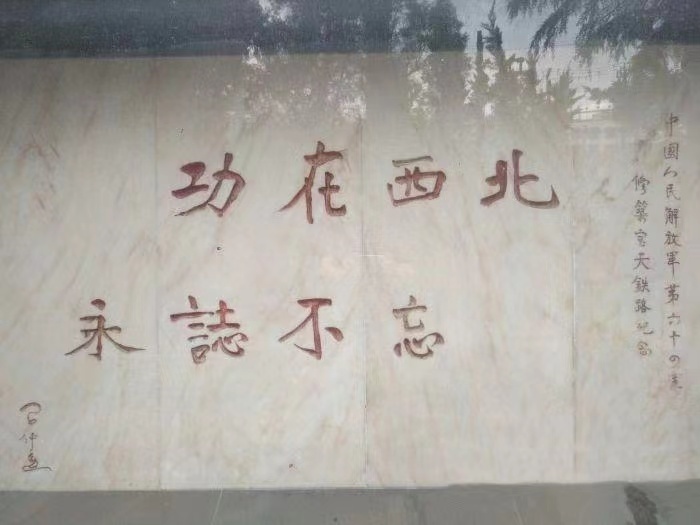 中国人民解放軍第六十四軍
修築宝天鉄路紀念
功在西北
永誌不忘